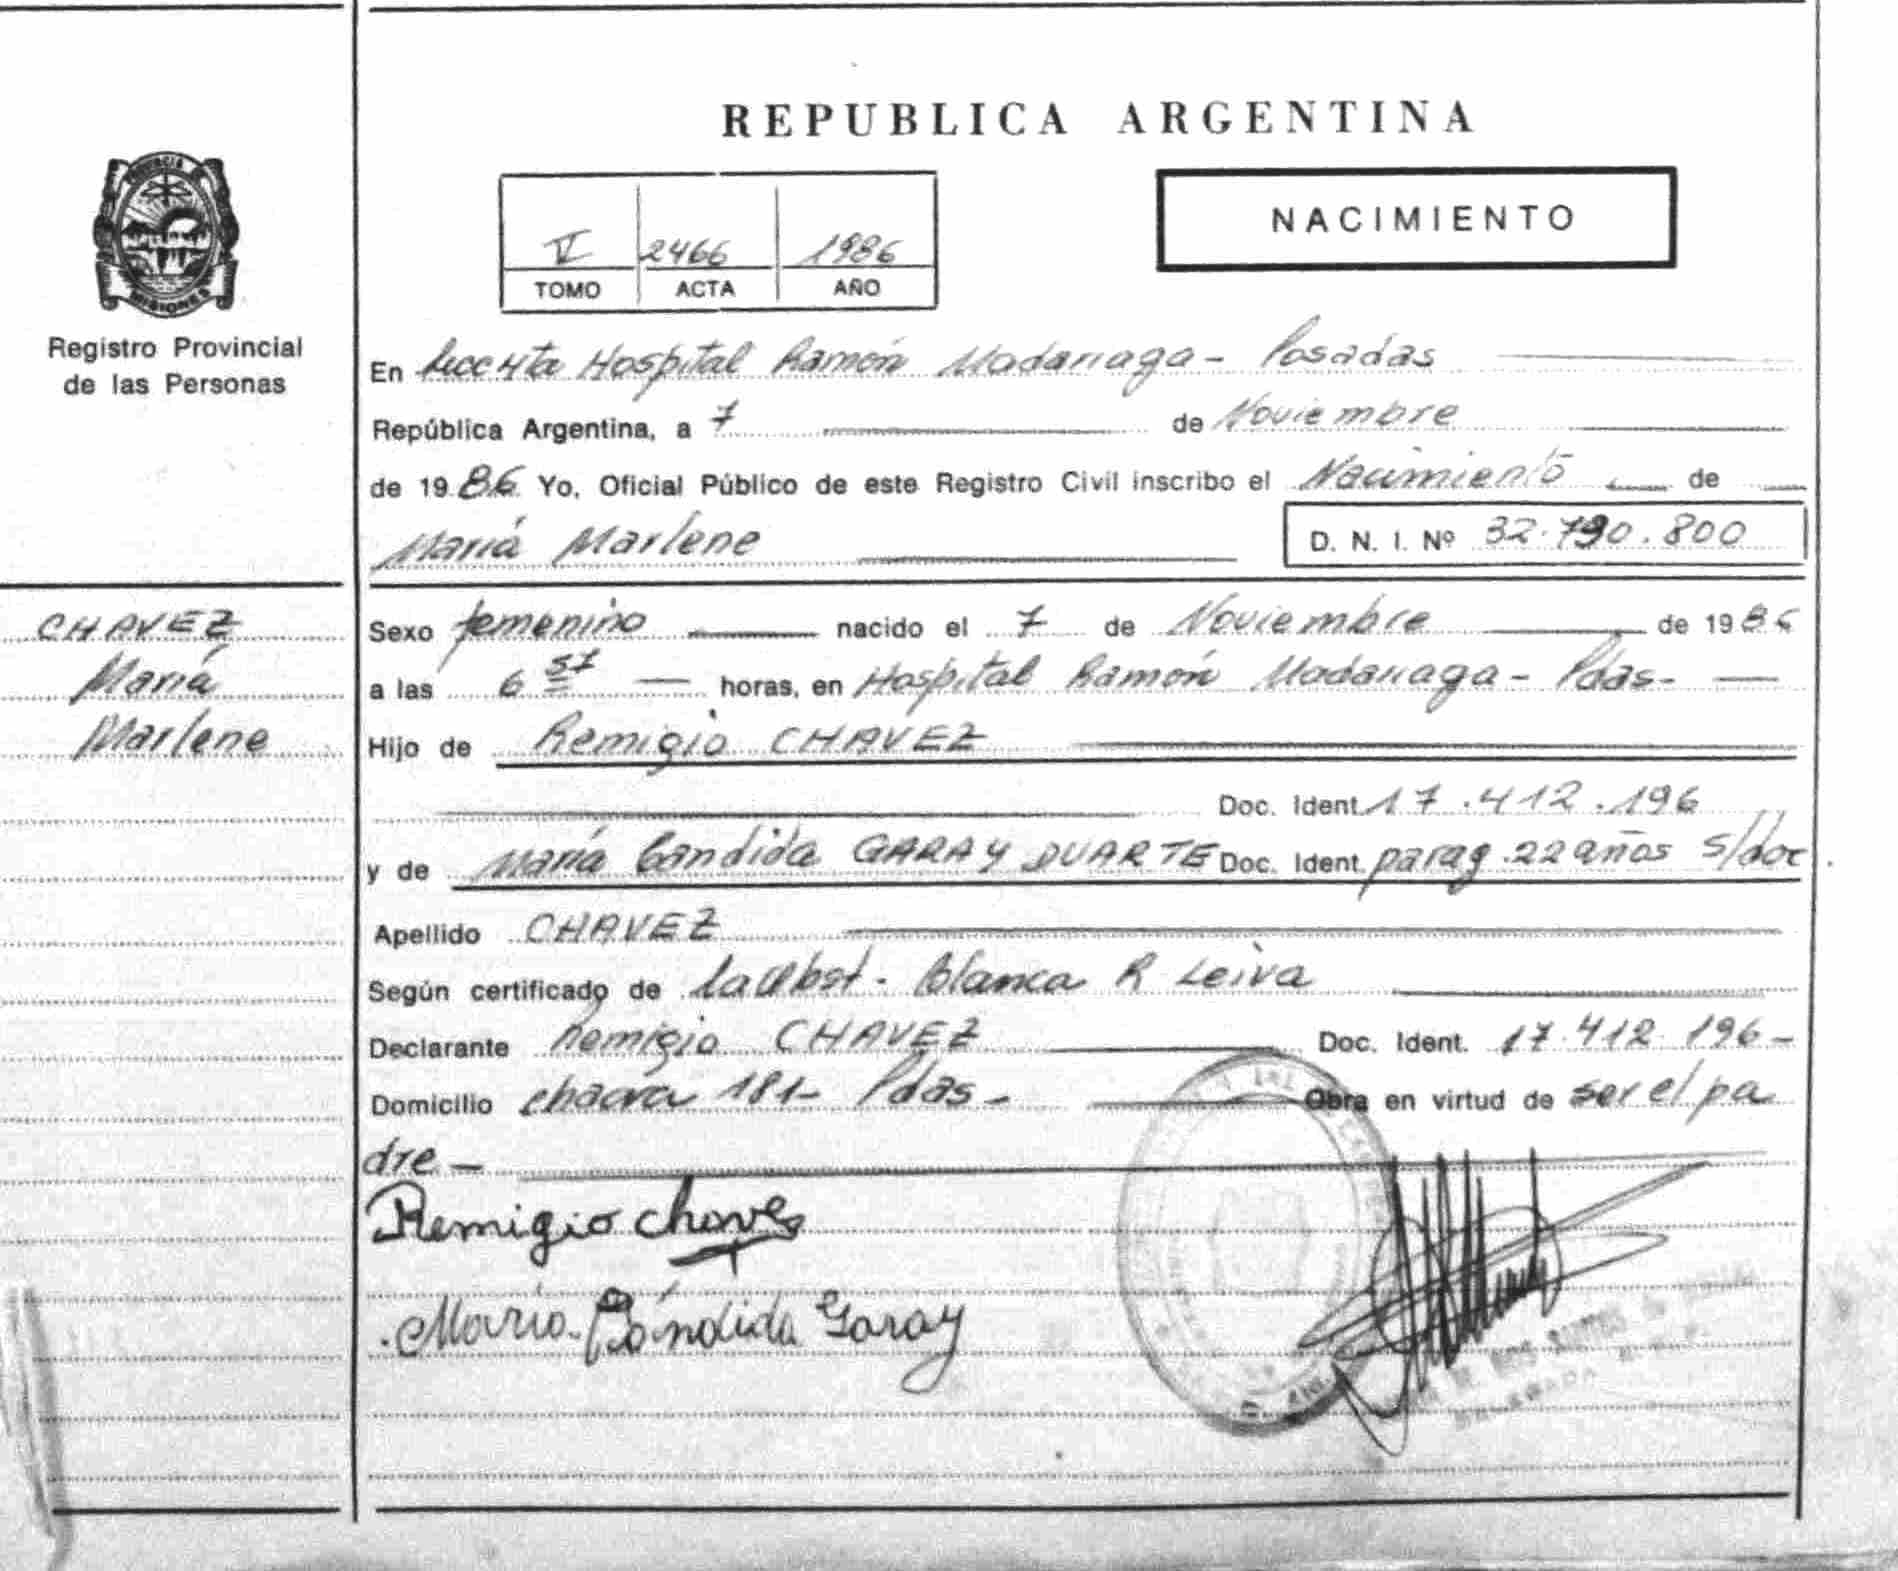 REPUBLICA ARGENTINA
PROVINCIA DE
MISIONES
Registro Provincial
de las Personas
NACIMIENTO
V 2466 1986
TOMO ACTA AÑO
En Hospital Ramón Madariaga - Posadas
República Argentina, a 7 de Noviembre
de 1986 Yo, Oficial Público de este Registro Civil inscribo el Nacimiento de
María Marlene
D. N. I. Nº 32.790.800
CHAVEZ
María
Marlene
Sexo femenino nacido el 7 de Noviembre de 1986
a las 6 57 horas, en Hospital Ramón Madariaga - Pdas-
Hijo de Remigio CHAVEZ
Doc. Ident. 17.412.196
y de María Candida GARAY DUARTE Doc. Ident. parag. 22 años s/doc
Apellido CHAVEZ
Según certificado de la Obst. Blanca R Leiva
Declarante Remigio CHAVEZ Doc. Ident. 17.412.196-
Domicilio chacra 181- Pdas- Obra en virtud de ser el pa
dre -
Remigio Chaves
María Cándida Garay